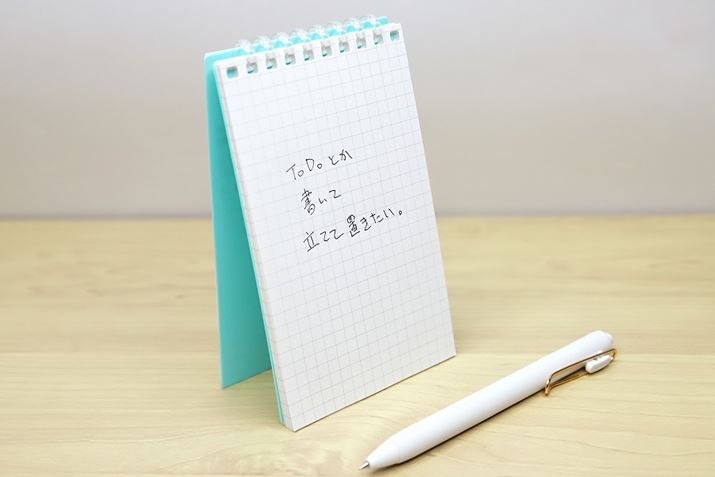 ToDoとか
書いて
立てて置きたい。